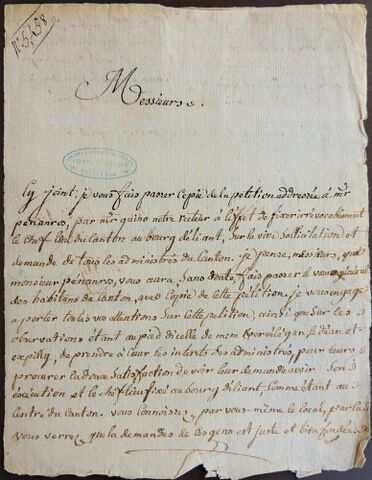 N.° 5,458
Messieurs &.
Cy joint, je vous fais passer Copie de la petition addressée à mr
penanros, par mr quino notre recteur à l'effet de fixer irrévocablement
le Chef lieu du Canton au bourg d'éliant, sur la vive sollicitation et
demande de tous les administrés du Canton. je pense, messieurs, que
monsieur penanros, vous aura, sans doute, fais passer le vœu général
des habitans du Canton, avec Copie de cette petition. je vous engage
a porter toutes vos attentions sur cette petition, ainsi que sur les
observations étant au pied d'icelle de mrs Kervélégan le déan et
expilly, de prendre à cœur les interets des administrés, pour leurs
procurer la douce satisfaction de voir leur demande avoir son
éxécution et le chef lieu fixé au bourg d'éliant comme étant au
Centre du Canton. vous connoissez par vous-même le local, par la
vous verrez que la demandes de
est juste et bien fondée.